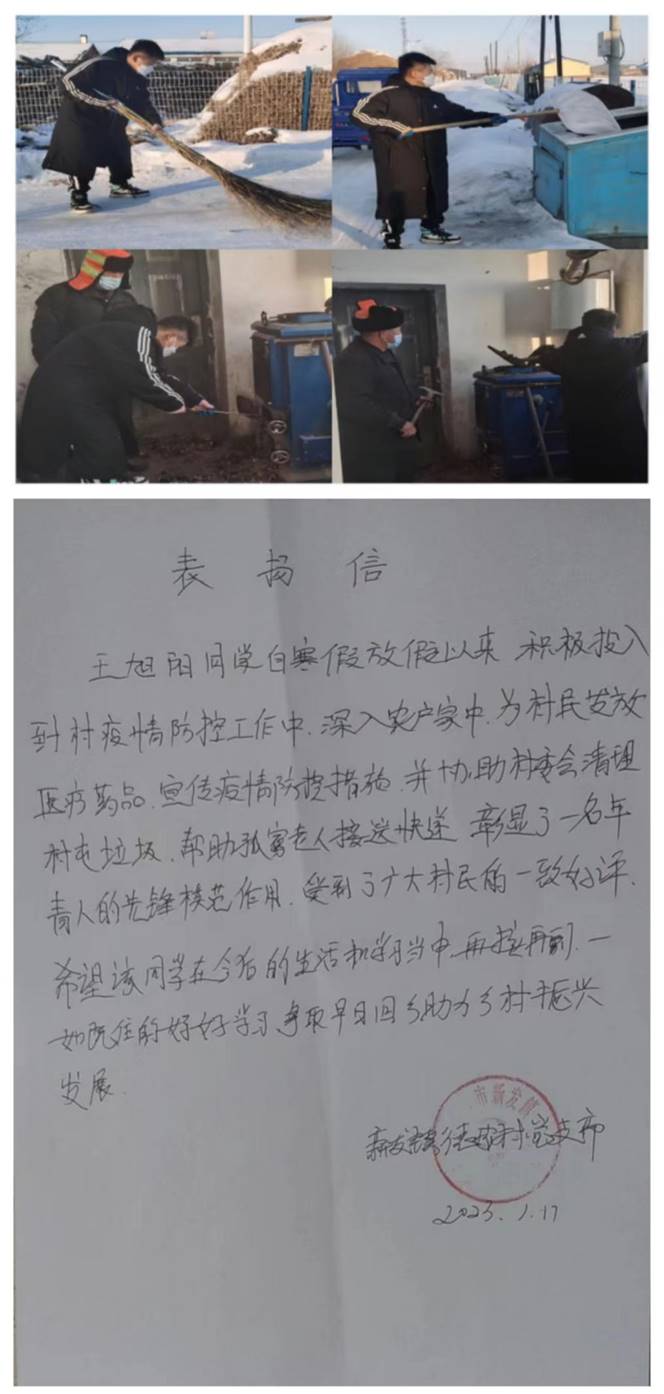 表扬信
王旭阳同学自寒假放假以来 积极投入
到村疫情防控工作中.深入农户家中.为村民发放
医疗药品.宣传疫情防控措施.并协助村委会清理
村屯垃圾.帮助孤寡老人接送快递 彰显了一名年
青人的先锋模范作用.受到了广大村民的一致好评.
希望该同学在今后的生活和学习当中.再接再励.一
如既往的好好学习.争取早日回乡助力乡村振兴
发展.
市新发镇
新发镇德 村党支部
2023.1.17